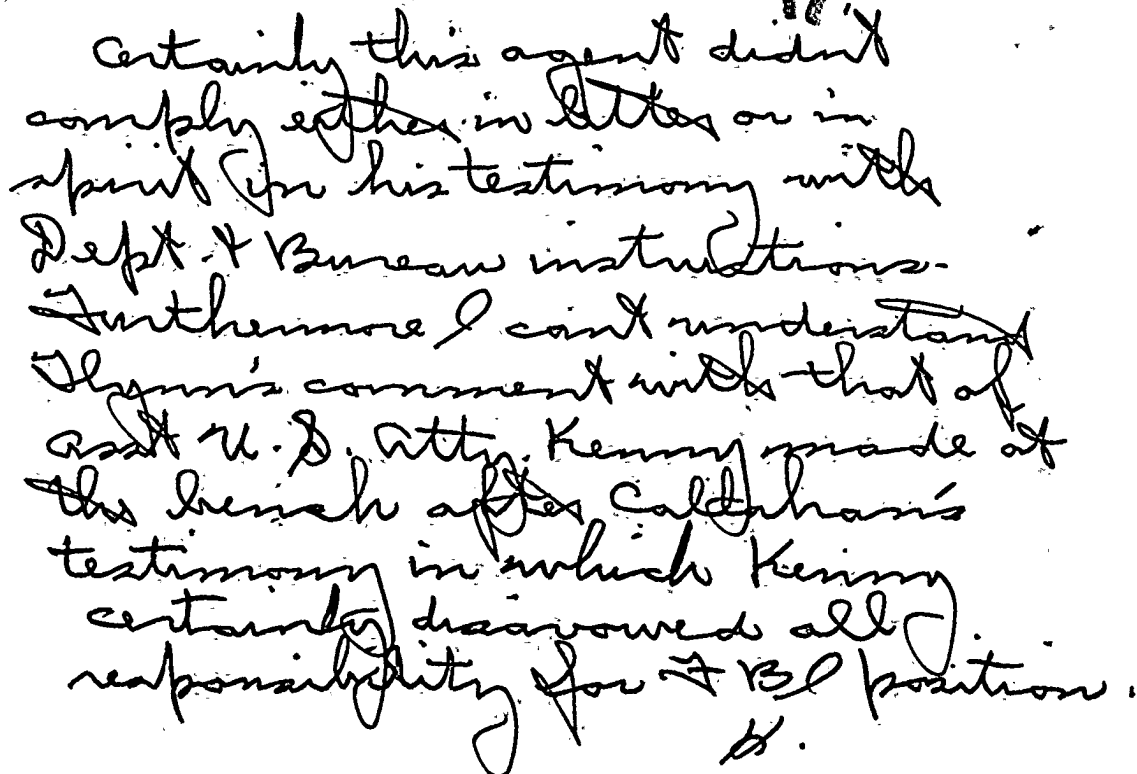 Certainly this agent didn't
comply either in letter or in
spirit in his testimony with
Dept. & Bureau instructions.
Furthermore I can't understand
Flynn's comment with that of
asst U.S. Atty. Kenny made at
the bench after Callahan's
testimony in which Kenny
certainly disavowed all
responsibility for FBI position.
H.